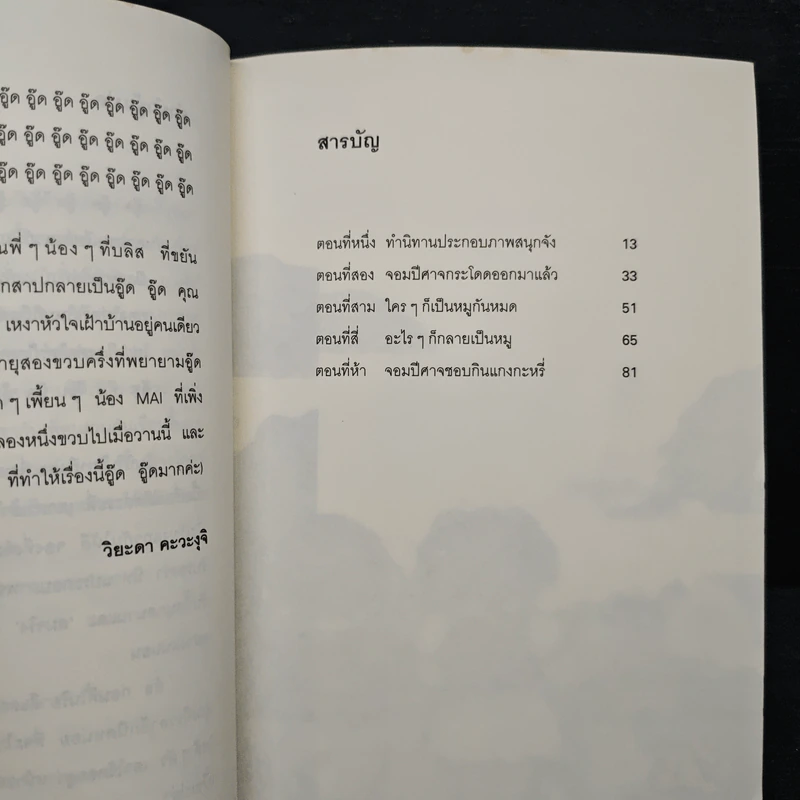 อู๊ด อู๊ด อู๊ด อู๊ด อู๊ด อู๊ด อู๊ด อู๊ด
อู๊ด อู๊ด อู๊ด อู๊ด อู๊ด อู๊ด อู๊ด อู๊ด
อู๊ด อู๊ด อู๊ด อู๊ด อู๊ด อู๊ด อู๊ด อู๊ด
พี่ ๆ น้อง ๆ ที่บลิส ที่ขยัน
กสาปกลายเป็นอู๊ด อู๊ด คุณ
เหงาหัวใจเฝ้าบ้านอยู่คนเดียว
ายุสองขวบครึ่งที่พยายามอู๊ด
ๆ เพี้ยน ๆ น้อง MAI ที่เพิ่ง
ลองหนึ่งขวบไปเมื่อวานนี้ และ
ที่ทำให้เรื่องนี้อู๊ด อู๊ดมากค่ะ)
วิยะดา คะวะงุจิ
สารบัญ
ตอนที่หนึ่ง ทำนิทานประกอบภาพสนุกจัง 13
ตอนที่สอง จอมปีศาจกระโดดออกมาแล้ว 33
ตอนที่สาม ใคร ๆ ก็เป็นหมูกันหมด 51
ตอนที่สี่ อะไร ๆ ก็กลายเป็นหมู 65
ตอนที่ห้า จอมปีศาจชอบกินแกงกะหรี่ 81